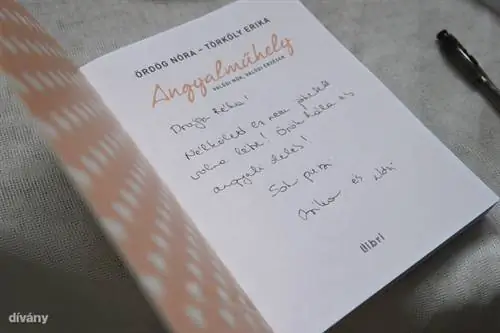 ÖRDÖG NÓRA - TÖRKÖLY ERIKA
Angyalműhely
VALÓDI NŐK, VALÓDI ÉRZÉSEK
Drága Réka!
Nélküled ez nem jöhetett
volna létre! Örök hála és
angyali ölelés!
Sok puszi
és
libri
dívány